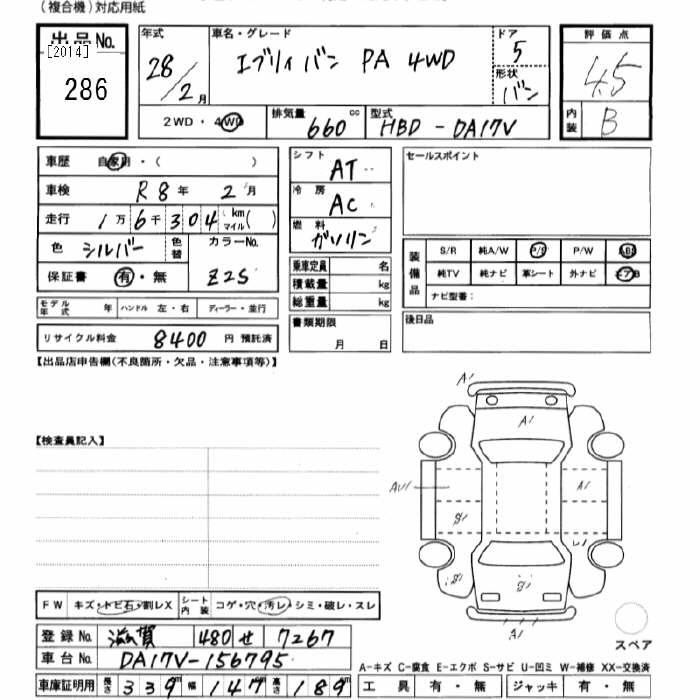 (複合機)対応用紙
出品No.
[2014]
286
年式
28/2月
車名・グレード
エブリィ バン PA 4WD
ドア
5
形状
バン
評価点
4.5
内装
B
2WD・4WD
排気量 660 cc
型式 HBD-DA17V
車歴 自家用・( )
車検 R8年 2月
走行 1万6千304km マイル( )
色 シルバー 色替
カラーNo.
Z2S
保証書 有・無
モデル年式 年 ハンドル 左・右 ディーラー・並行
リサイクル料金 8400 円 預託済
シフト AT
冷房 AC
燃料 ガソリン
乗車定員 名
積載量 kg
総重量 kg
書類期限
月 日
セールスポイント
装備品
S/R 純A/W P/S P/W ABS
純TV 純ナビ 革シート 外ナビ エアB
ナビ型番:
後日品
【出品店申告欄(不良箇所・欠品・注意事項等)】
【検査員記入】
A1
A1
AU1
A1
A1
FW キズ・トビ石・割レX シート内装 コゲ・穴・汚レ・シミ・破レ・スレ
スペア
登録No. 滋賀 480 せ 7267
車台No. DA17V-156795
車庫証明用 長さ 339 幅 147 高さ 189
A-キズ C-腐食 E-エクボ S-サビ U-凹ミ W-補修 XX-交換済
工具 有・無 ジャッキ 有・無